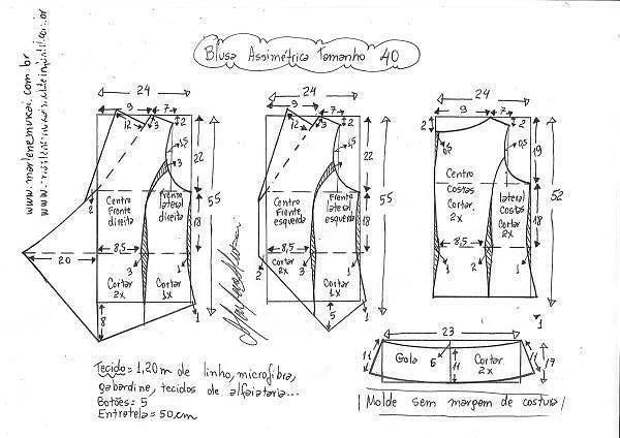 Blusa Assimétrica Tamanho 40
www.marlenemukai.com.br
24
9
7
12
3
2
1,5
3
22
55
18
2
Centro
Frente
direita
Frente
lateral
direita
8,5
20
3
1
Cortar
2x
Cortar
1x
8
1
24
9
7
12
3
2
1,5
3
22
55
18
Centro
Frente
esquerda
Frente
lateral
esquerda
8,5
2
3
1
Cortar
2x
Cortar
1x
5
1
24
9
9
2
2
0,5
19
52
18
Centro
Costas
Cortar
2x
lateral
Costas
Cortar
2x
8,5
1
2
1
1
23
11
Gola
6
11
Cortar
2x
11
Tecido = 1,20m de linho, microfibra,
gabardine, tecidos de alfaiataria...
Botões: 5
Entretela = 50cm
Molde sem margem de costura